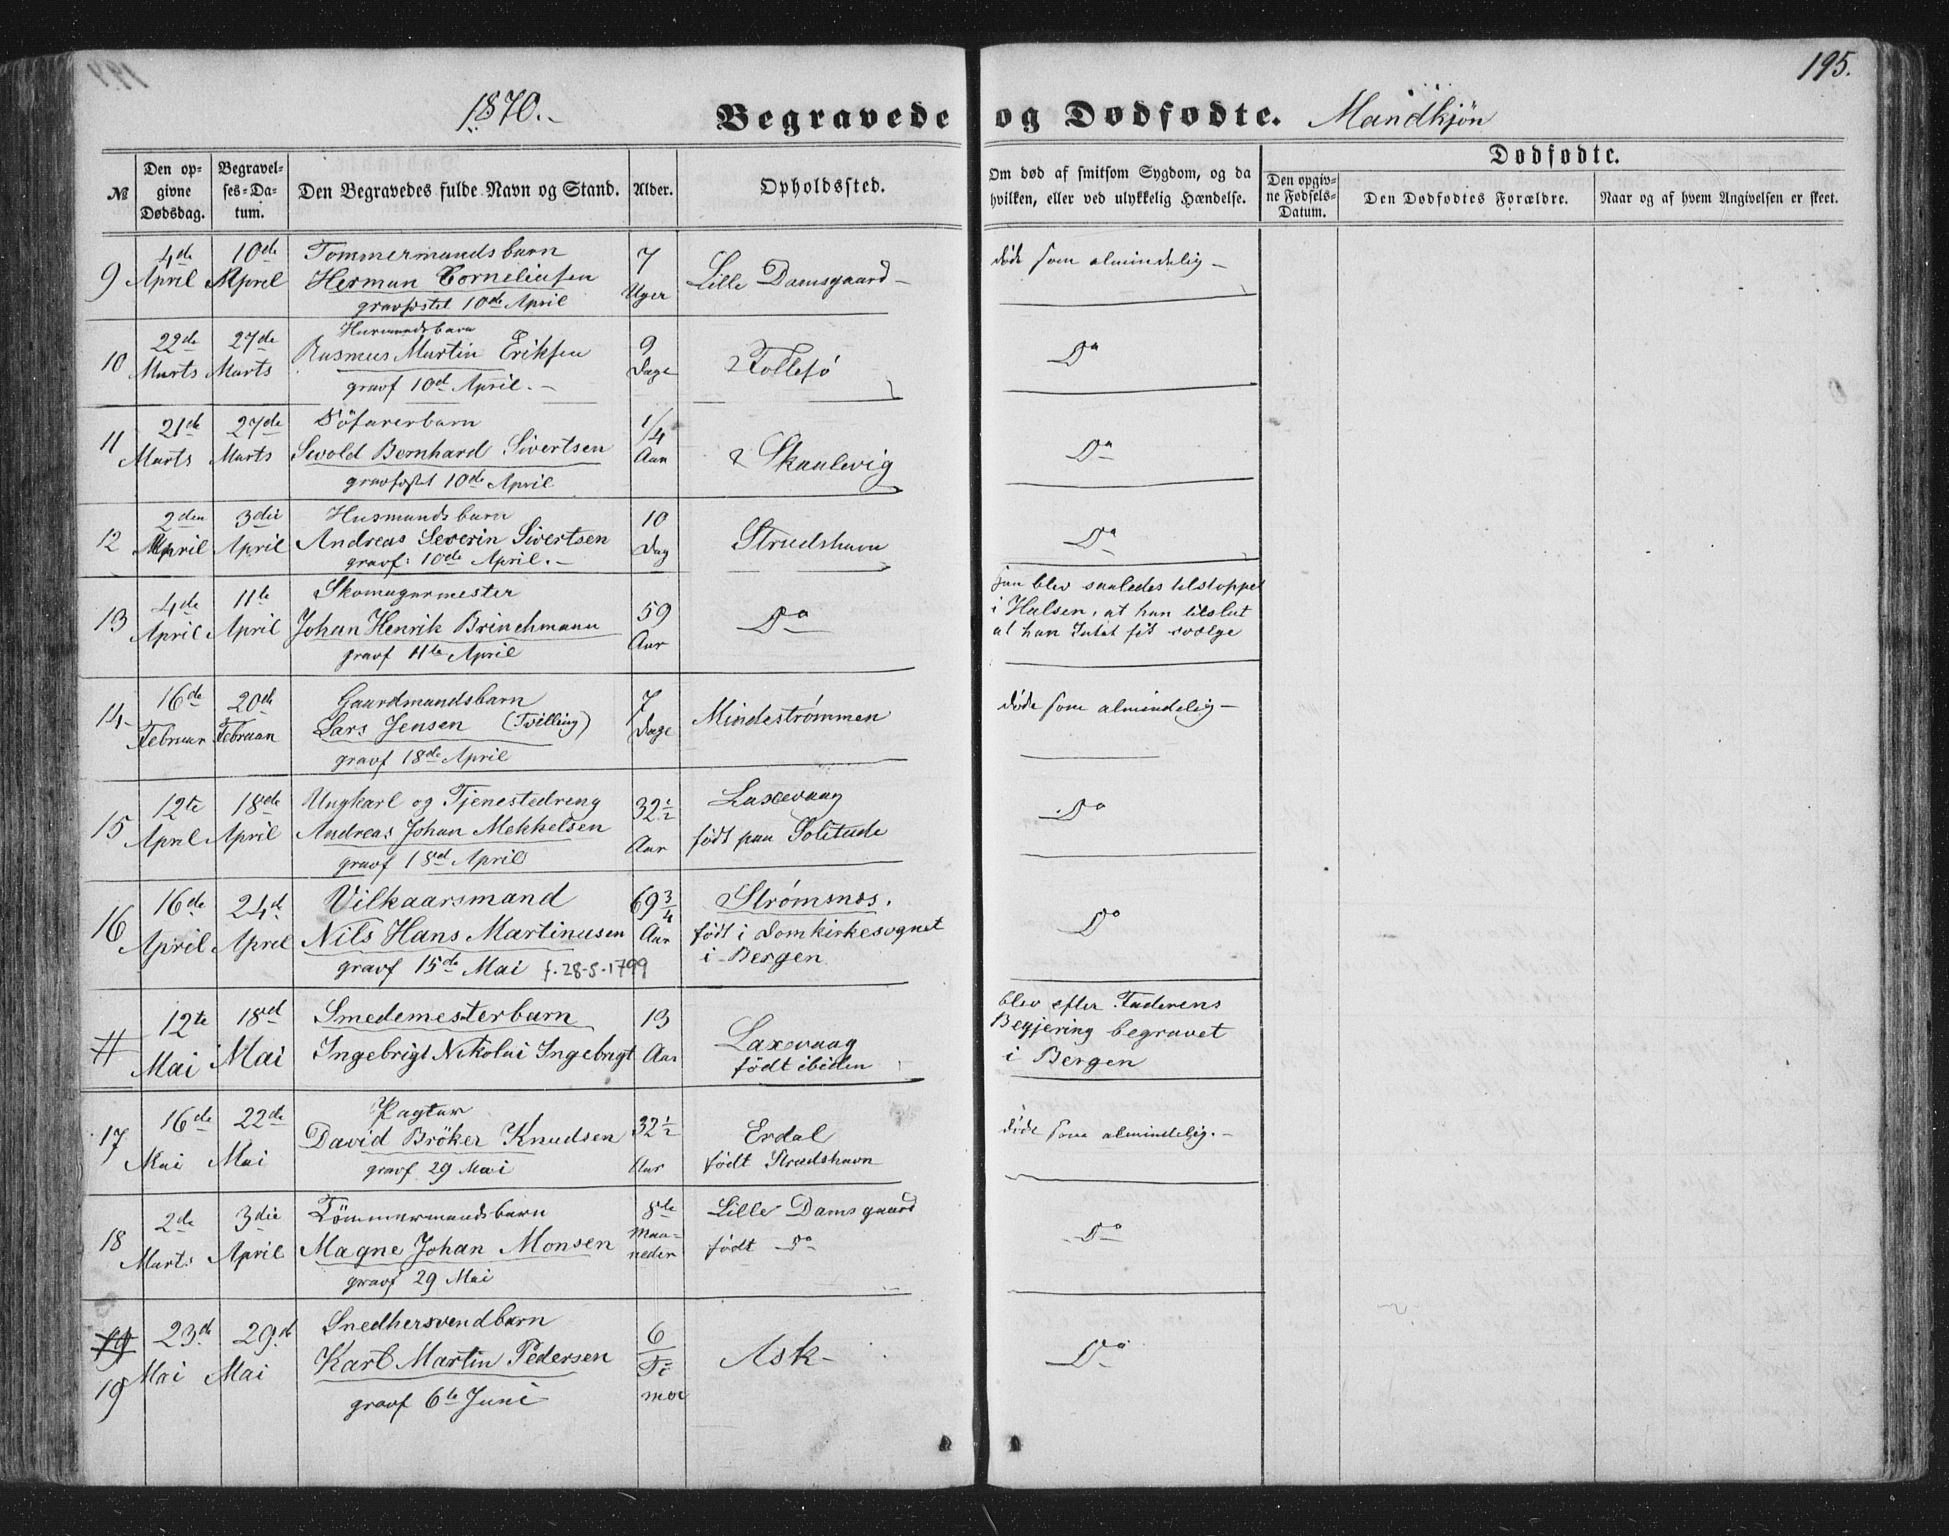 195.
1870.
Begravede og Dødfødte. Mandkjön
№
Den opgivne Dødsdag.
Begravelses-Datum.
Den Begravedes fulde Navn og Stand.
Alder.
Opholdssted.
Om død af smitsom Sygdom, og da hvilken, eller ved ulykkelig Hændelse.
Dødfødte.
Den opgivne Fødsels-Datum.
Den Dødfødtes Forældre.
Naar og af hvem Angivelsen er skeet.
9
4de April
10de April
Tømmermandsbarn
Herman Corneliusen
gravfæstet 10de April
7 Uger
Lille Damsgaard
døde som almindelig
10
22de Marts
27de Marts
Husmandsbarn
Rasmus Martin Eriksen
gravf 10de April.
9 Dage
Follesø
Do
11
21de Marts
27de Marts
Söfarerbarn
Sivold Bernhard Sivertsen
gravfæstet 10de April
1/4 Aar
Skaalevig
Do
12
2den April
3die April
Husmandsbarn
Andreas Severin Sivertsen
gravf: 10de April.
10 Dag
Strudshavn
Do
13
4de April
11te April
Skomagermester
Johan Henrik Brinchmann
gravf 11te April
59 Aar
Do
han blev saaledes tilstoppet
i Halsen, at han tilslut
at han Intet fik svælge
14
16de Februar
20de Februar
Gaardmandsbarn
Lars Jensen (Tvilling)
gravf 18de April
7 Dage
Mindestrømmen
døde som almindelig
15
12te April
18de April
Ungkarl og Tjenestedreng
Andreas Johan Mekkelsen
gravf 18de April
32 1/2 Aar
Laxevaag
født paa Solitude
Do
16
16de April
24de April
Vilkaarsmand
Nils Hans Martinusen
gravf 15de Mai f. 28-5-1799
69 3/4 Aar
Strømsnes.
født i Domkirkesognet
i Bergen
Do
#
12te Mai
18de Mai
Smedemesterbarn
Ingebrigt Nikolai Ingebrigt
13 Aar
Laxevaag
født ibiden
blev efter Faderens
Begjering begravet
i Bergen
17
16de Mai
22de Mai
David Bröker Knudsen
gravf 29 Mai
32 1/2 Aar
Erdal
født Strudshavn
døde som almindelig.
18
2de Marts
3die April
Tömmermandsbarn
Magne Johan Monsen
gravf 29 Mai
8de Maaneder
Lille Damsgaard
født Do
Do
19
19
23de Mai
29de Mai
Snedkersvendbarn
Karl Martin Pedersen
gravf 6te Juni
6 Timer
Ask
Do